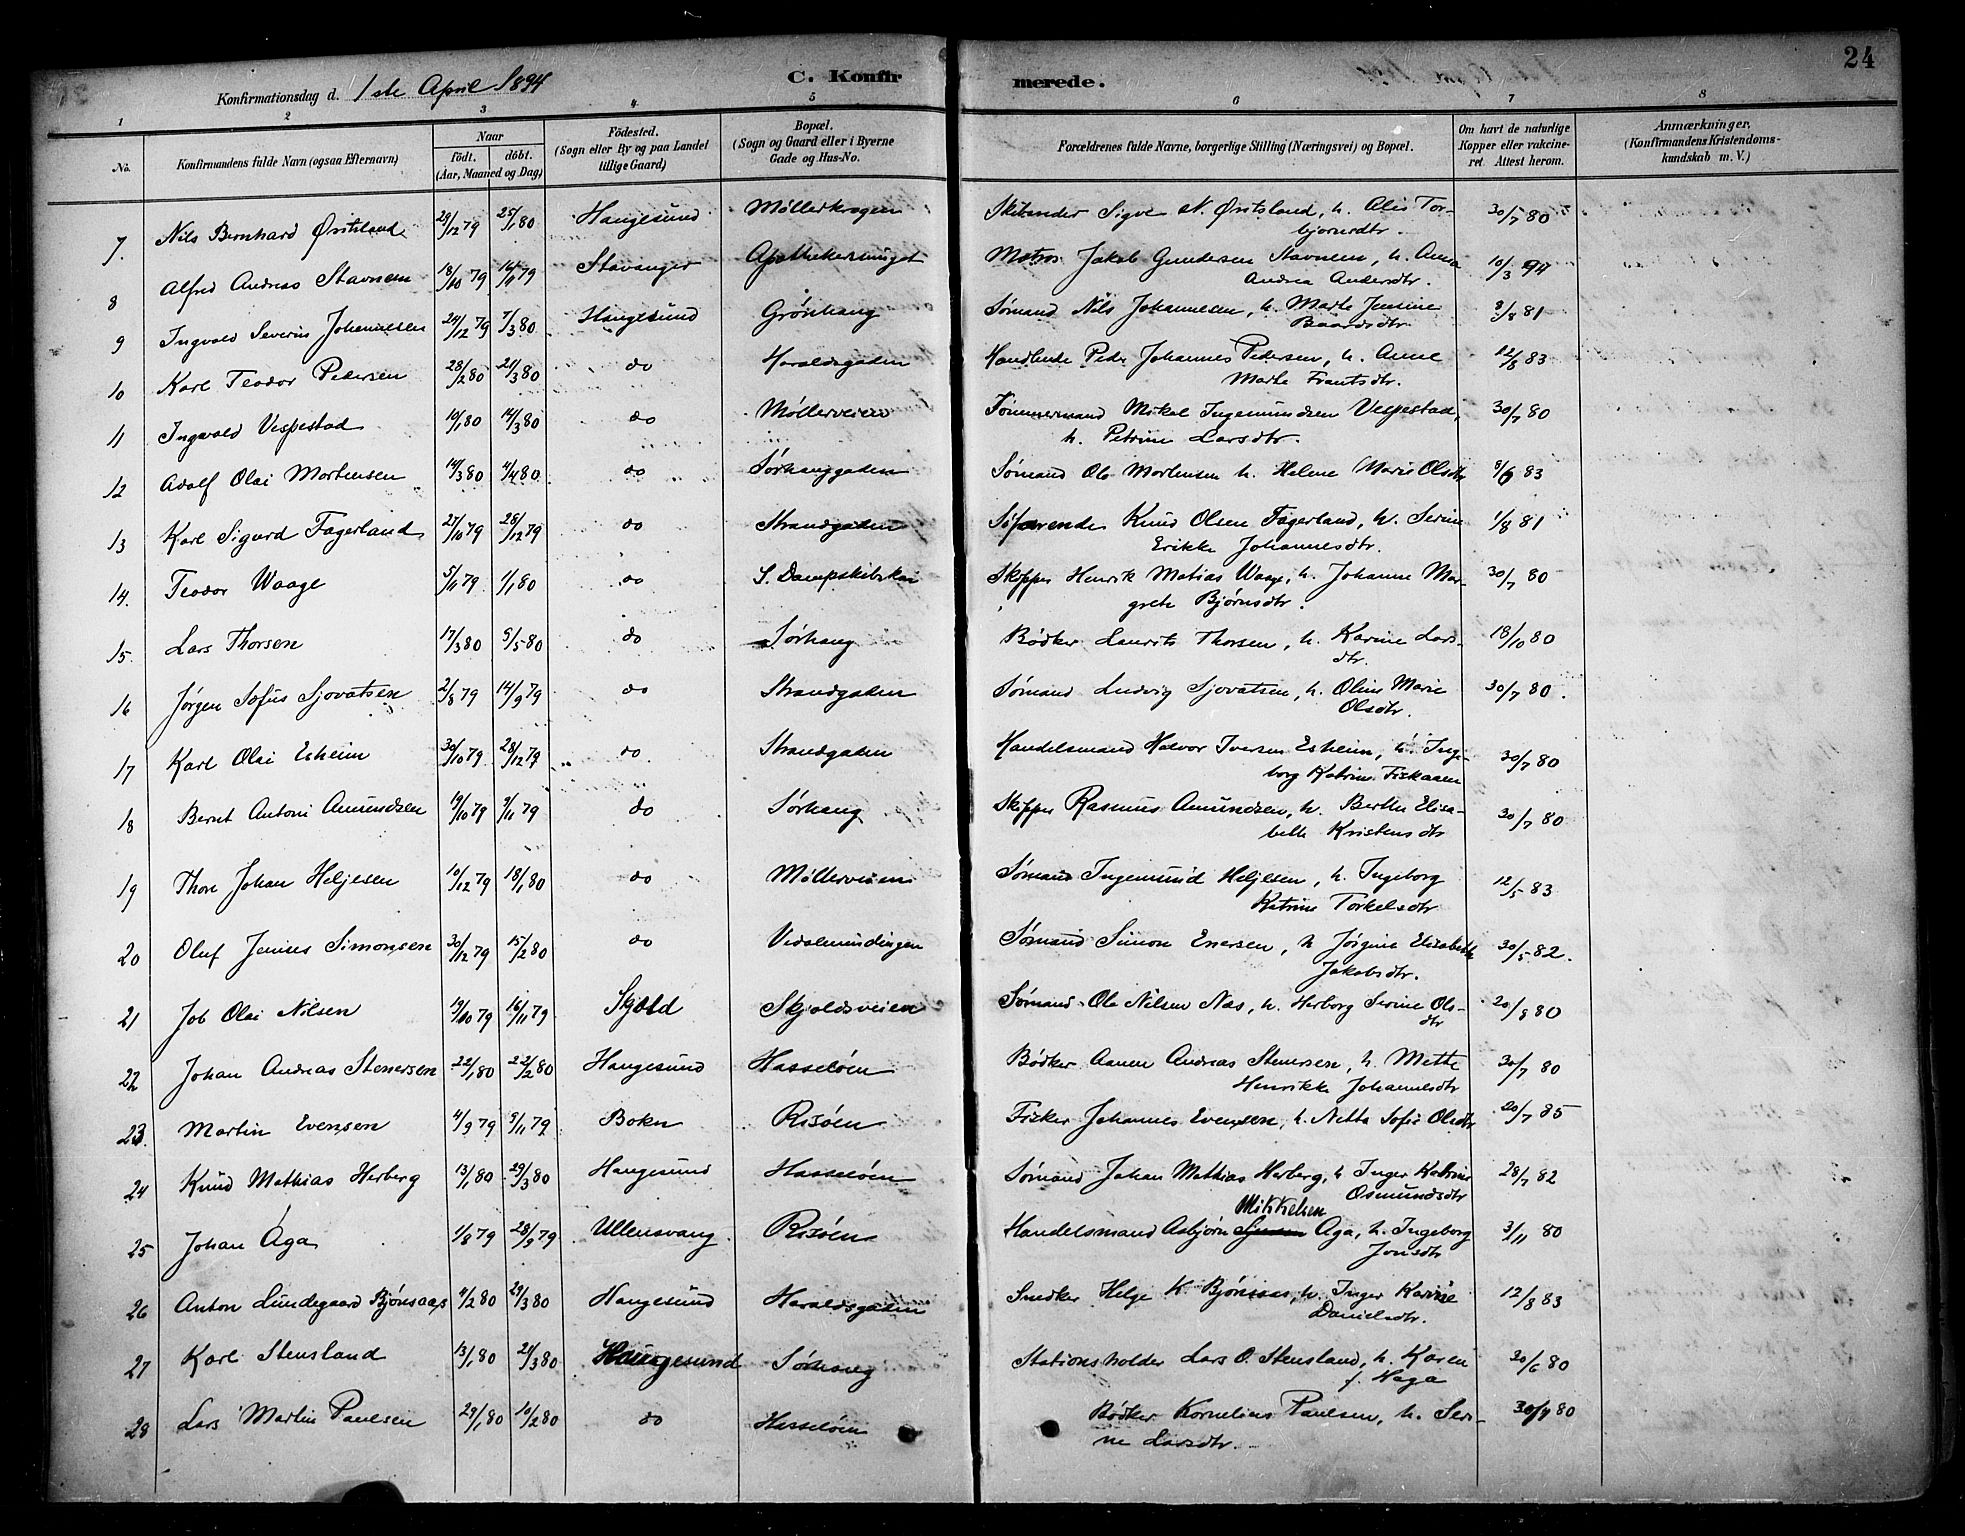 24
Konfirmationsdag d. 1ste April 1894
C. Konfir merede.
1 2 3 4 5 6 7 8
No.
Konfirmandens fulde Navn (ogsaa Efternavn)
Naar
födt. döbt.
(Aar, Maaned og Dag)
Födested.
(Sogn eller By og paa Landet
tillige Gaard)
Bopæl.
(Sogn og Gaard eller i Byerne
Gade og Hus-No.
Forældrenes fulde Navne, borgerlige Stilling (Næringsvei) og Bopæl.
Om havt de naturlige
Kopper eller vakcine-
ret. Attest herom.
Anmærkninger.
(Konfirmandens Kristendoms-
kundskab m. V.)
7. Nils Bernhard Østsland 29/12 79 25/1 80 Haugesund Møllerkrogen Sigve N. Østsland, h. Alis Tor- 30/7 80
bjørnsdtr.
8 Alfred Andreas Stavnem 18/10 79 16/11 79 Stavanger Apothekersmuget Matros Jakob Gundersen Stavnem, h. Anna 10/3 94
Andrea Andersdtr.
9 Ingvald Severin Johannesen 24/12 79 7/3 80 Haugesund Grönhaug Sømand Nils Johannesen, h. Marte Jensine 3/8 81
Baardsdtr.
10 Karl Teodor Pedersen 28/2 80 21/3 80 do Haraldsgaden Handlende Peder Johannes Pedersen, h. Anne 12/8 83
Marte Frantsdtr.
11 Ingvald Vespestad 10/1 80 14/3 80 do Møllerveien Tømmermand Mikal Ingemundsen Vespestad, 30/7 80
h. Petrine Larsdtr.
12 Adolf Olai Mortensen 14/3 80 4/4 80 do Sørhauggaden Sømand Ole Mortensen h. Helene Marie Olsdtr 8/6 83
13 Karl Sigurd Fagerland 27/10 79 28/12 79 do Strandgaden Søfarende Knud Olsen Fagerland, h. Serine 1/8 81
Erikke Johannesdtr.
14. Teodor Waage 5/11 79 1/1 80 do S. Dampskibskai Skipper Henrik Matias Waage, h. Johanne Mar- 30/7 80
grete Bjørnsdtr.
15. Lars Thorsen 17/3 80 9/5 80 do Sørhaug Bødker Laurits Thorsen, h. Karine Lars- 18/10 80
dtr.
16 Jørgen Sofus Sjovatsen 2/8 79 14/9 79 do Strandgaden Sømand Ludvig Sjovatsen, h. Oline Marie 30/7 80.
Olsdtr.
17 Karl Olai Eskeim 30/10 79 28/12 79 do Strandgaden Handelsmand Halvor Iversen Eskeim, h. Inge- 30/7 80
borg Katrine Fiskaaen
18 Bernt Antoni Amundsen 19/10 79 9/11 79 do Sørhaug Skipper Rasmus Amundsen, h. Berthe Elisa- 30/7 80
beth Kristensdtr
19 Thore Johan Heljesen 10/12 79 18/1 80 do Møllerveien Sømand Ingemund Heljesen, h. Ingeborg 12/5 83
Katrine Torkelsdtr
20 Oluf Jenius Simonsen 30/12 79 15/2 80 do Sømand Simon Enersen, h Jørgine Elisabeth 30/5 82.
Jakobsdtr.
21 Job Olai Nilsen 19/10 79 16/11 79 Skjold Skjoldsveien Sømand Ole Nilsen Næs, h. Herborg Serine Ols- 20/8 80
dtr
22 Johan Andreas Stenersen 22/1 80 22/2 80 Haugesund Hasseløen Bødker Aanen Andreas Stenersen, h. Mette 30/7 80
Henrikke Johannesdtr
23. Martin Evensen 4/9 79 9/11 79 Boken Risöen Fisker Johannes Evensen, h. Netta Sofie Olsdtr 20/7 85
24 Knud Mathias Herberg 13/1 80 29/3 80 Haugesund Hasseløen Sømand Johan Mathias Herberg, h Inger Katrine 28/7 82
Osmundsdtr
Mikkelsen
25 Johan Aga 1/8 79 28/9 79 Ullensvang Risöen Handelsmand Asbjørn Aga, h. Ingeborg 3/11 80
Jonsdtr
26 Anton Lundegaard Bjönsaas 4/2 80 29/3 80 Haugesund Haraldsgaden Snedker Helge K. Bjönsaas, h. Inger Karine 12/8 83
Danielsdtr.
27 Karl Stensland 13/1 80 21/3 80 Haugesund Sørhaug Stationsholder Lars O. Stensland, h. Karen 30/6 80
f. Haga
28 Lars Martin Paulsen 29/1 80 10/2 80 do Hasseløen Bødker Kornelius Paulsen, h. Ser- 30/7 80
ine Larsdtr.